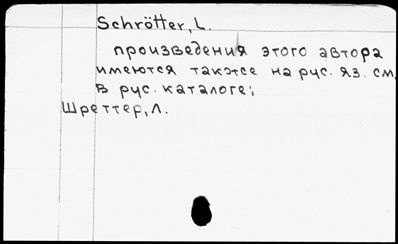 Schrötter, L.
произведения этого автора
имеются также на рус. яз. см.
в рус. каталоге:
Шреттер, Л.